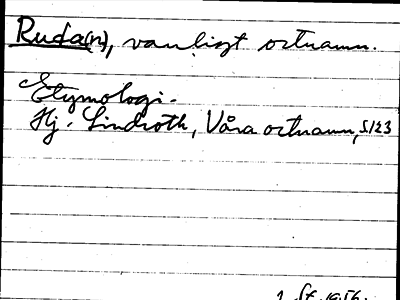 Ruda(n), vanligt ortnamn.
Etymologi.
Hj. Lindroth, Våra ortnamn, s123
1 St. 1956.